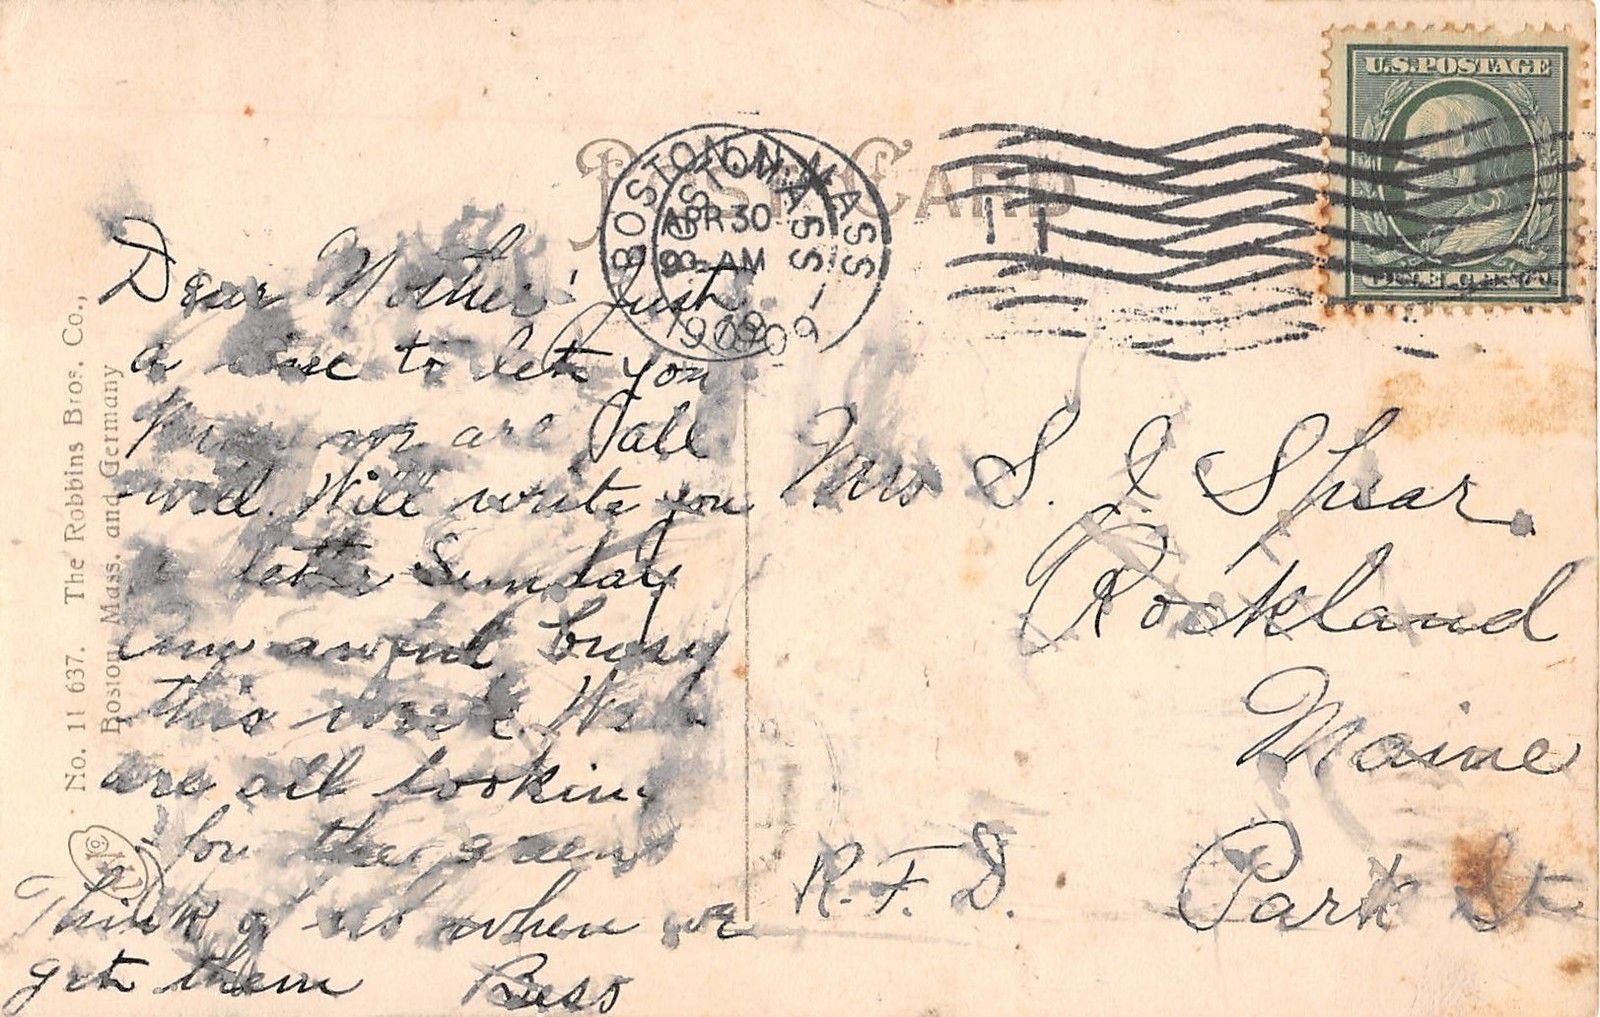 POST CARD
BOSTON, MASS.
APR 30
9 - AM
1909
BOSTON, MASS.
1909
U.S. POSTAGE
No. 11 637. The Robbins Bros. Co.,
Boston, Mass. and Germany
Dear Mother: Just
a line to let you
know we are all
well. Will write you
a letter Sunday
Am awful busy
this week. We
are all looking
for the greens
Think of us when we
get them Bess
Mrs S. J. Spear.
Rockland
Maine
R.F.D. Park St.